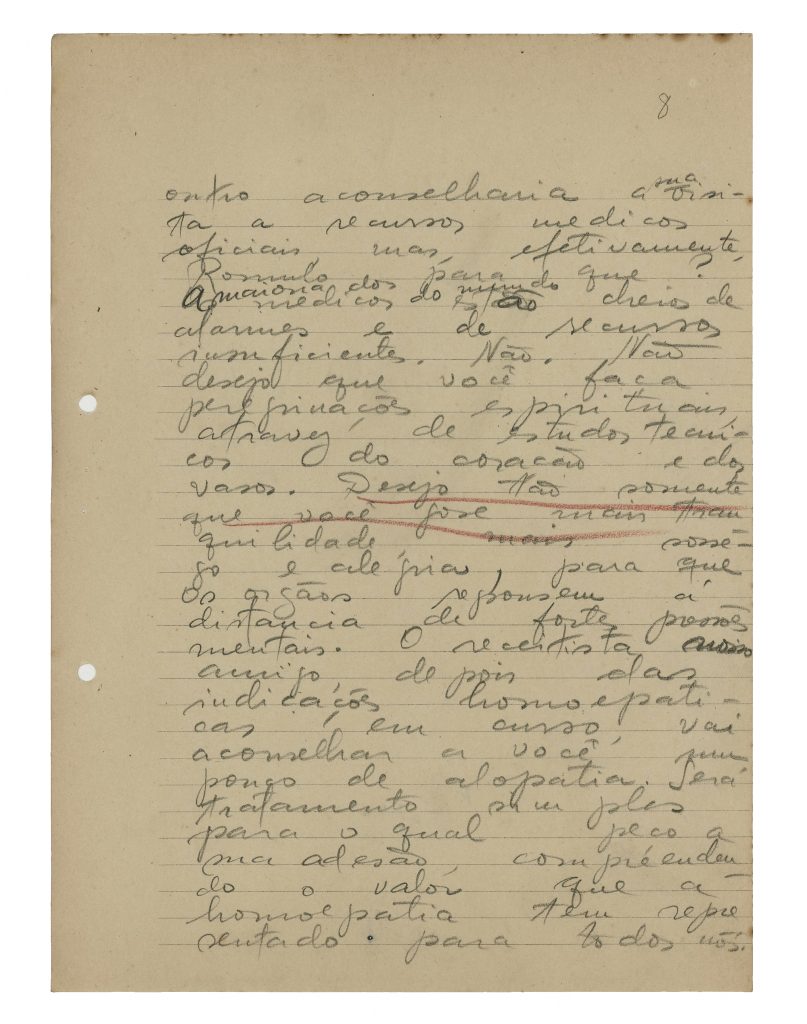 8
outro aconselharia a sua visi-
ta a recursos medicos
oficiais mas, efetivamente,
Romulo, para que?
A maioria dos medicos do mundo estão cheios de
alarmes e de recursos
insuficientes. Não. Não
desejo que você faça
peregrinações espirituais,
atravez de estudos tecni-
cos do coração e dos
vasos. Desejo tão somente
que você gose mais tran
quilidade, mais sossê-
go e alegria, para que
os orgãos repousem á
distancia de fortes pressões
mentais. O receitista nosso
amigo, depois das
indicações homoepati-
cas, em curso, vai
aconselhar a você um
pouco de alopatia. Será
tratamento simples
para o qual peço a
sua adesão, compreenden
do o valor que a
homoepatia tem repre
sentado para todos nós.